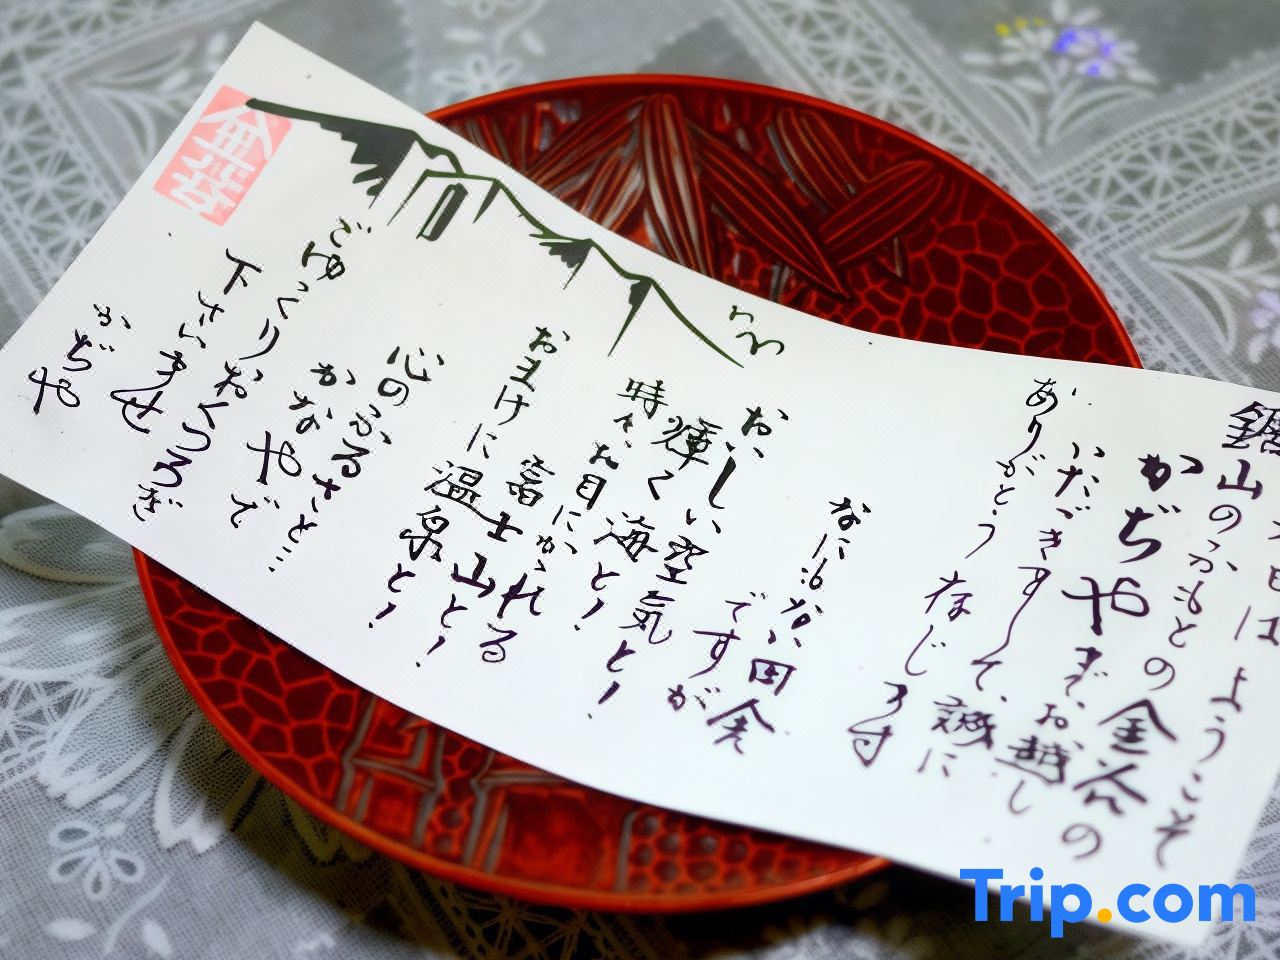 本日は ようこそ
鋸山のふもとの金谷の
かぢやまで、お越し
いたゞきまして、誠に
ありがとうございます
なにもない田舎
ですが
おいしい空気と!
輝く海と!
時々お目にかかれる
富士山と!
おまけに温泉と!
心のふるさと…
かなやで
ごゆっくりおくつろぎ
下さいませ
かぢや
金谷
Trip.com